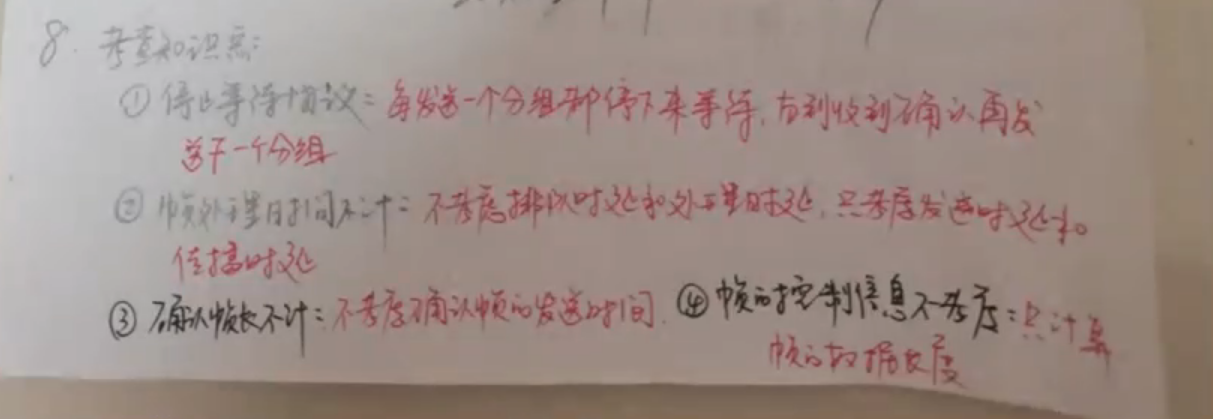 8. 考查知识点:
① 停止等待协议: 每发送一个分组都停下来等待, 直到收到确认再发
送下一个分组
② 帧处理时间不计: 不考虑排队时延和处理时延, 只考虑发送时延和
传播时延
③ 确认帧长不计: 不考虑确认帧的发送时间. ④ 帧的控制信息不考虑: 只计算
帧的数据长度